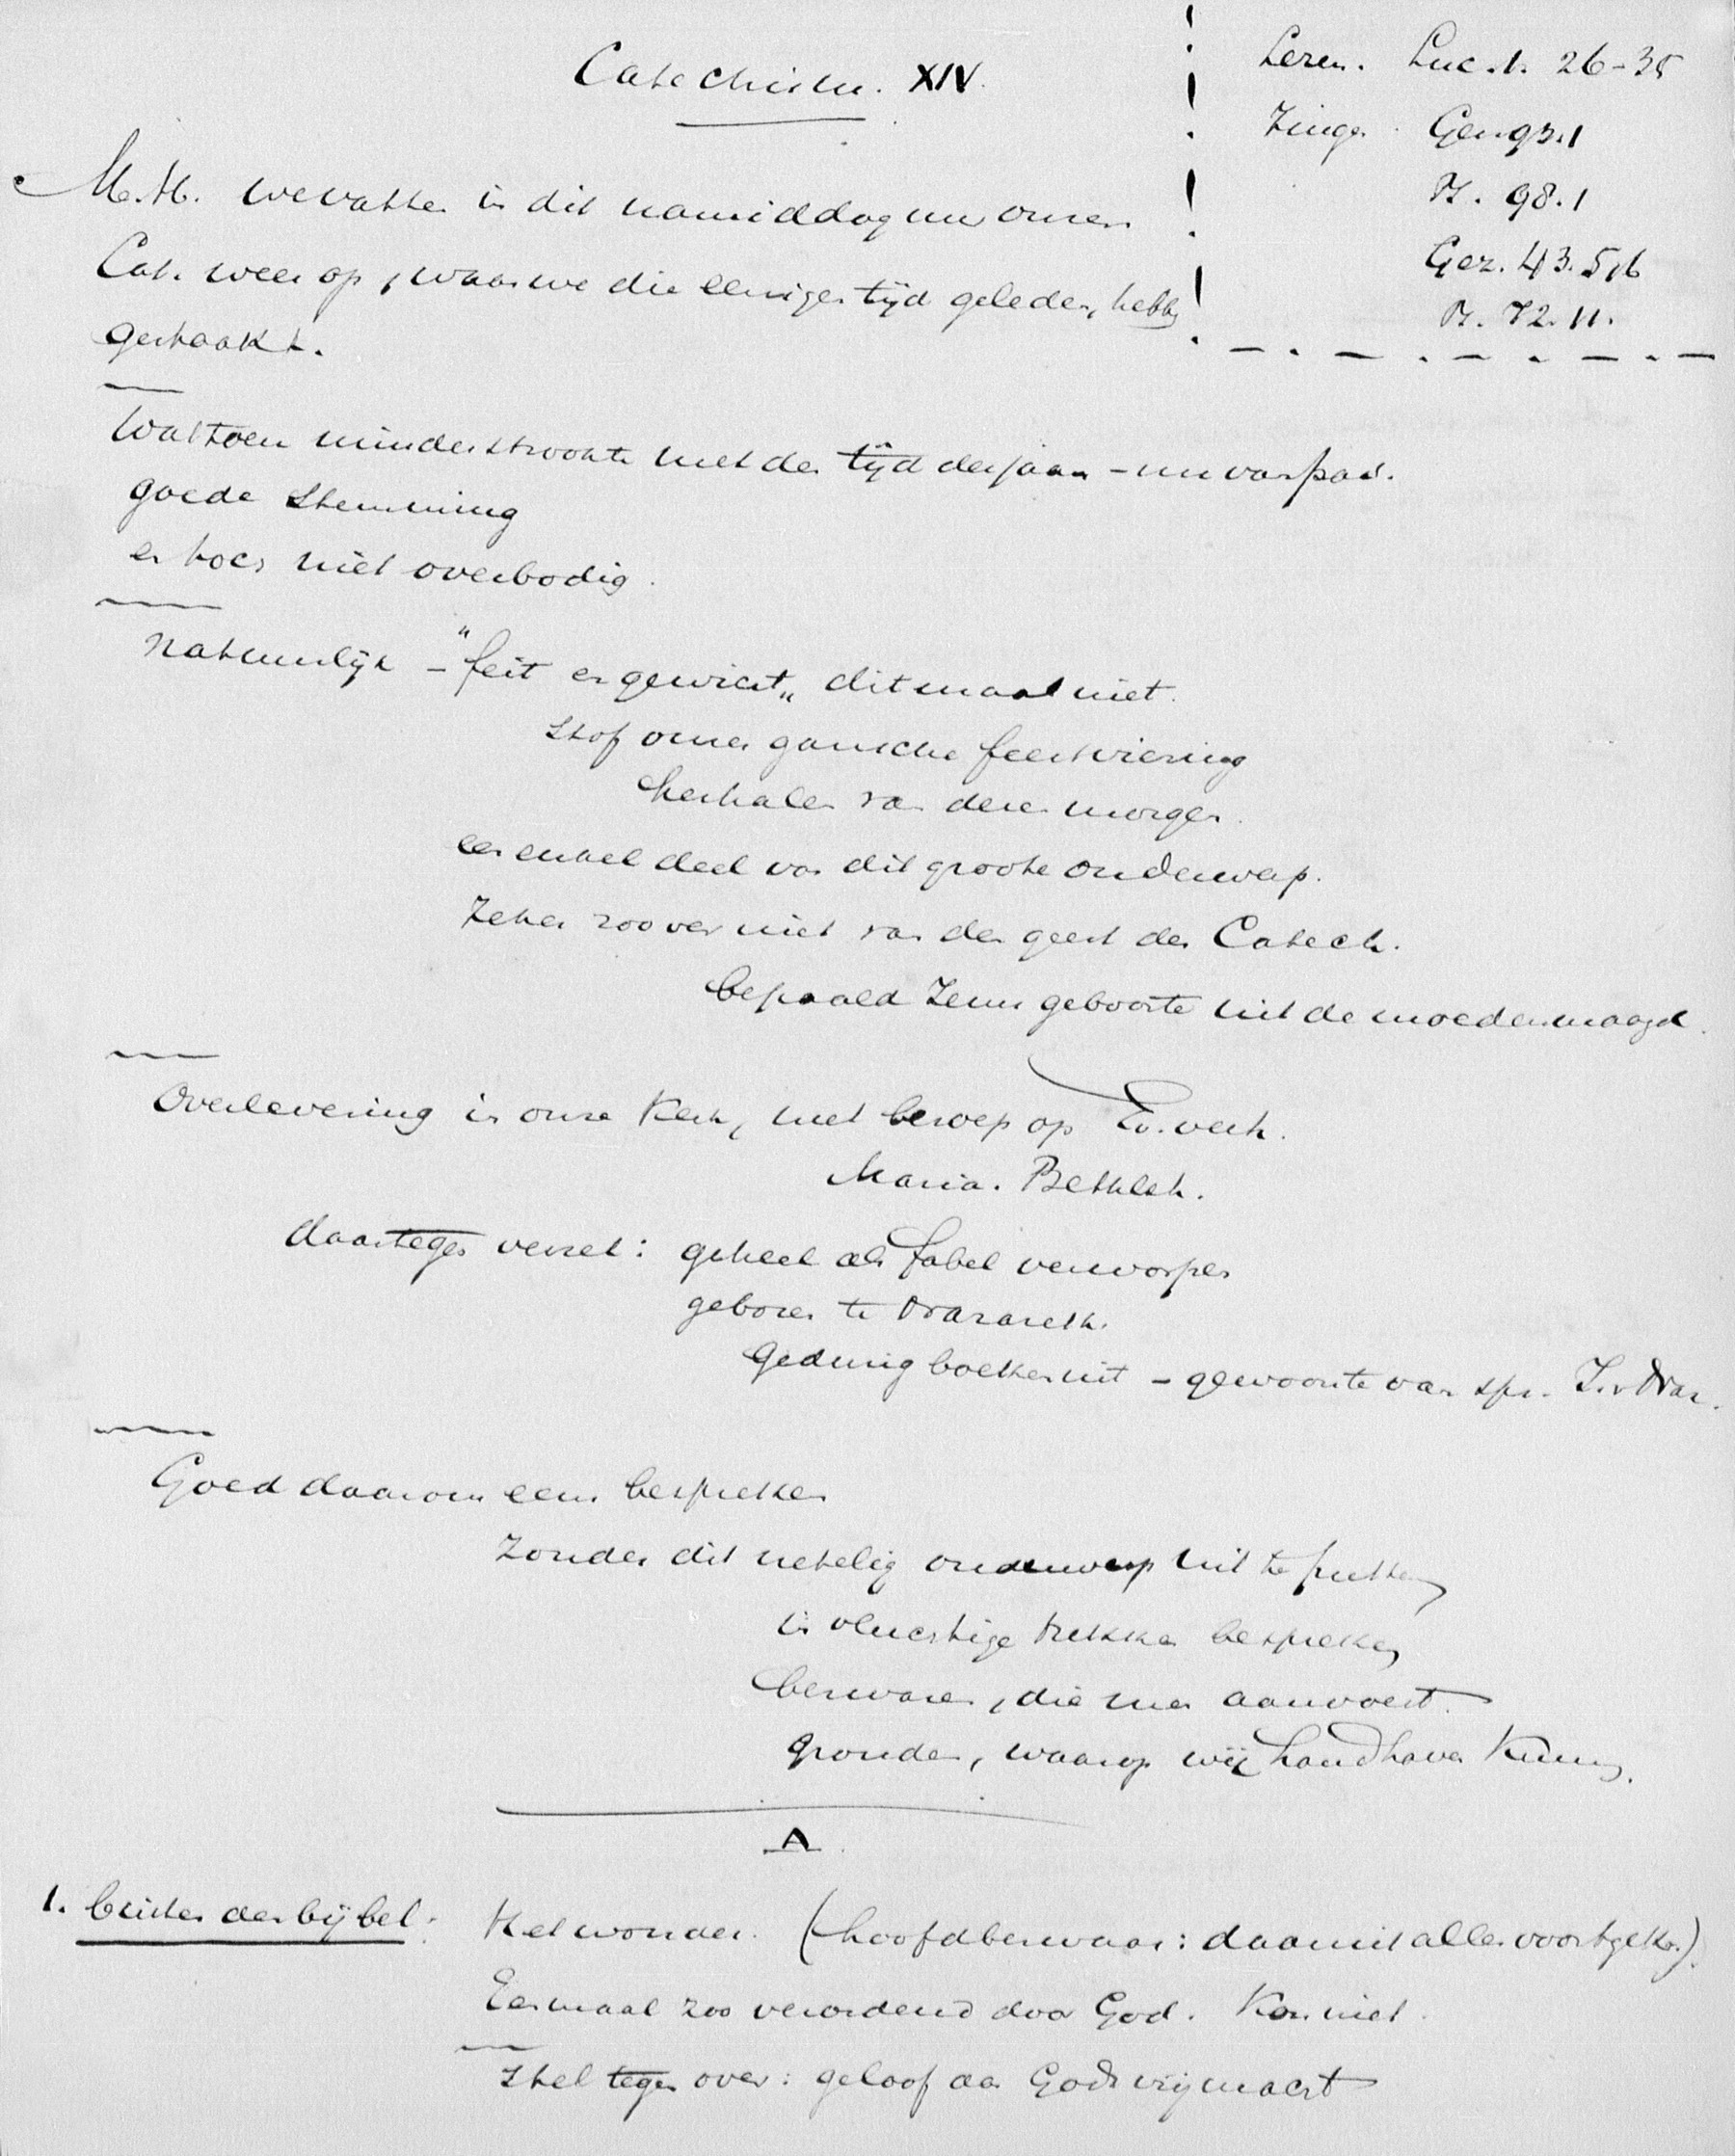 Catechism. XIV.
Lezen. Luc. 1. 26-35
Zingen. Gez. 93.1
Ps. 98.1
Gez. 43.5,6
Ps. 72.11.
M.H. we vatten in dit namiddaguur onzen
Cat. weer op, waar we die eenigen tijd geleden, hebben
gestaakt.
Wat toen minder strookte met den tijd des jaars - nu van pas.
goede stemming
en toch niet overbodig.
Natuurlijk - "feit en gewicht" ditmaal niet.
stof onzer gansche feestviering
herhalen van dezen morgen.
een enkel deel van dit groote onderwerp.
Zeker zoo ver niet van den geest der Catech.
bepaald Jezus geboorte uit de moedermaagd.
Overlevering in onze Kerk, met beroep op Ev. verh.
Maria. Bethleh.
daartegen verzet: geheel als fabel verworpen
geboren te Nazareth.
Gedurig boeken uit - gewoonte van spr. J. v. Naz.
Goed daarom eens bespreken
Zonder dit netelig onderwerp uit te putten
in vluchtige trekken bespreken
bezwaren, die men aanvoert.
gronden, waarop wij handhaven kunnen.
A.
1. buiten den bijbel: Het wonder. (hoofdbezwaar: daaruit alles voortgek.)
Eenmaal zoo verordend door God. Kan niet.
Stel tegenover: geloof aan Gods vrijmacht